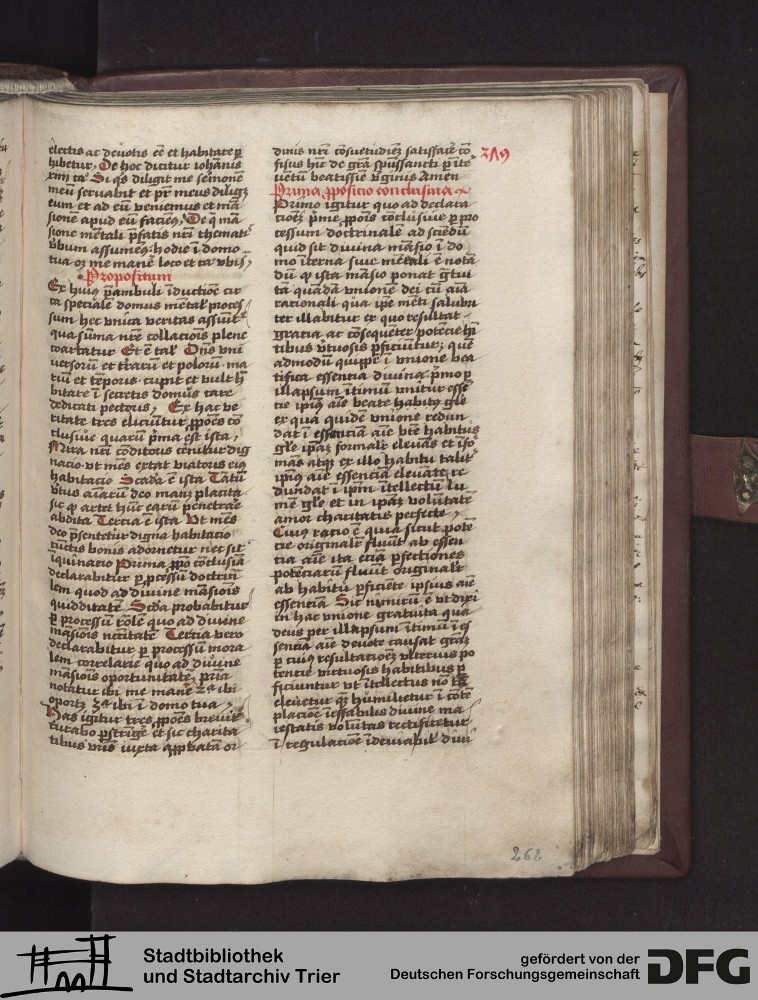 electis ac deuotis eē et habitare ꝑ
hibetur, De hoc dicitur iohānis
xiiij ca° Si q̄s diligit me sermonē
meū seruabit et pr̄ meus diligꝫ
eum et ad eū veniemus et mā
sionē apud eū faciemꝰ, De q̄ mā
sione mētali p̄fatis nr̄i themati
v̄bum assumēꝰ hodie ī domo
tua oꝫ me manē loco et ca° vbi sꝰ,
Propositum
Ex huiꝰ p̄ambuli īductiōe cir
ca speciale domus mētal' proces
sum hec vnica veritas assūit
qua sūma nr̄e collaciōis plene
coartatur Et ē tal' Om̄s vni
uersorū et t̄rarū et polorū ma
riū et tēporis cupit et vult hī
bitare ī secretis domus care
dedicati pectoris, Ex hac ve
ritate tres eliciūtur ꝓpōes cō
clusiue quarū p̄ma est ista,
Mira nr̄i cōditoris cernitur dig
nacio vt mēs extat viatoris eiꝰ
habitacio Scd̄a ē ista Tātū
v̄tus aīarū deo manꝫ placita
sic q̄ artet hūc earū penetrare
abdita Tercia ē ista Vt mēs
deo p̄sentetur digna habitacio
v̄tutis bonis adornetur nec sit
iquinacio Prima ꝓpō cōclusīa
declarabitur ꝑ ꝓcessū doctrin
lem quod ad diuine māsiōis
quidditatē Scd̄a probabitur
ꝑ processū rōlē quo ad diuine
māsiōis nccītatē Tercia vero
declarabitur ꝑ processū mora
lem correlarie quo ad diuine
māsiōis oportunitatē, pria
notatur ibi me manē 2ᵃ ibi
oportꝫ 3ᵃ ibi ī domo tua,
Has igitur tres ꝓpōes breuit'
curabo ꝑstrigē et sic charita
tibus vr̄is iuxta apꝓbatā or
dinis nr̄i cōsuetudiēꝫ satisfacē cō
fisus hīc de grā spūssancti ꝑ īte
uētū beatissiē v̄ginis Amen
Prima ꝓpositio conclusiua
Primo igitur quo ad declara
cioēꝫ p̄me ꝓpōis cōclusiue ꝑ pro
cessum doctrinalē ad sciēdū
quid sit diuina māsio ī do
mo īterna siue mētali ē notā
dū q̄ ista māsio ponat ḡtui
tā quādā vnionē dei cū aīa
rationali qua ip̄e mēti salubri
ter illabitur ex quo resultat
gratia ac cōsequēter potētie hī
tibus v̄tuosis ꝑficiūtur, quē
admodū quippe ī vnione bea
tifica essentia diuina p̄mo ꝑ
illapsum ītimū vnitur essē
tie ipiꝰ aīe beate habitꝰ gl'e
ex qua quidē vnione redun
dat ī essentiā aīe bt̄e habitus
gl'e ipāꝫ formal'r eleuās et īfor
māns atqꝫ ex illo habitu talit'
ipiꝰ aīe essentiā eleuāte re
dundat ī ipm̄ ītellectū lu
mē gl'e et in ipāꝫ volūtatē
amor charitatis perfecte,
Cuiꝰ ratio ē quia sicut potē
cie originalē fluūt ab essen
tia aīe ita etiā ꝑfectiones
potētiarū fluūt originalē
ab habitu ꝑficiēte ipsius aīe
essentiā Sic nimirū ē vt dixi
in hac vnione gratuita qua
deus per illapsum ītimū ī es
sentiā aīe deuote causat graꝫ
ꝑ cuiꝰ resultacioēꝫ vlterius po
tentie virtuosis habitibus ꝑ
ficiuntur vt ītellectus nō
eleuetur qꝫ humilietur ī cōtē
placioē ieffabilis diuine ma
iestatis volūtas rectificetur
ī regulatiōe īdeuiabil' diui
262
Stadtbibliothek
und Stadtarchiv Trier
gefördert von der
Deutschen Forschungsgemeinschaft
DFG